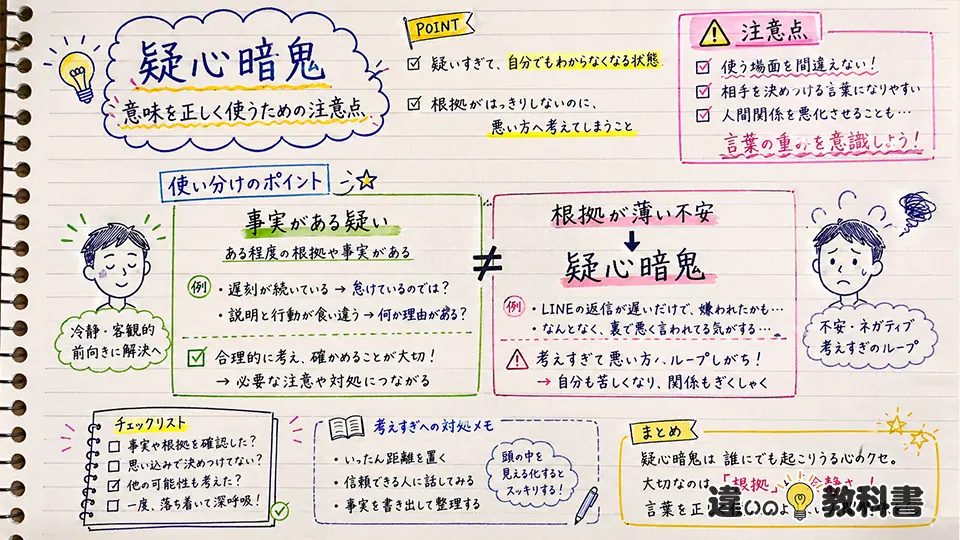 疑心暗鬼
意味を正しく使うための注意点
POINT
疑いすぎて、自分でもわからなくなる状態
根拠がはっきりしないのに、
悪い方へ考えてしまうこと
注意点
使う場面を間違えない!
相手を決めつける言葉になりやすい
人間関係を悪化させることも…
言葉の重みを意識しよう!
使い分けのポイント
事実がある疑い
ある程度の根拠や事実がある
例
・遅刻が続いている → 怠けているのでは?
・説明と行動が食い違う → 何か理由がある?
合理的に考え、確かめることが大切!
→ 必要な注意や対処につながる
冷静・客観的
前向きに解決へ
≠
根拠が薄い不安
疑心暗鬼
例
・LINEの返信が遅いだけで、嫌われたかも…
・なんとなく、裏で悪く言われてる気がする…
考えすぎて悪い方へ、ループしがち!
→ 自分も苦しくなり、関係もぎくしゃく
不安・ネガティブ
考えすぎのループ
チェックリスト
事実や根拠を確認した?
思い込みで決めつけてない?
他の可能性も考えた?
一度、落ち着いて深呼吸!
考えすぎへの対処メモ
・いったん距離を置く
・信頼できる人に話してみる
・事実を書き出して整理する
頭の中を
見える化すると
スッキリする!
まとめ
疑心暗鬼は 誰にでも起こりうる心のクセ。
大切なのは「根拠」
言葉を正
違いの教科書